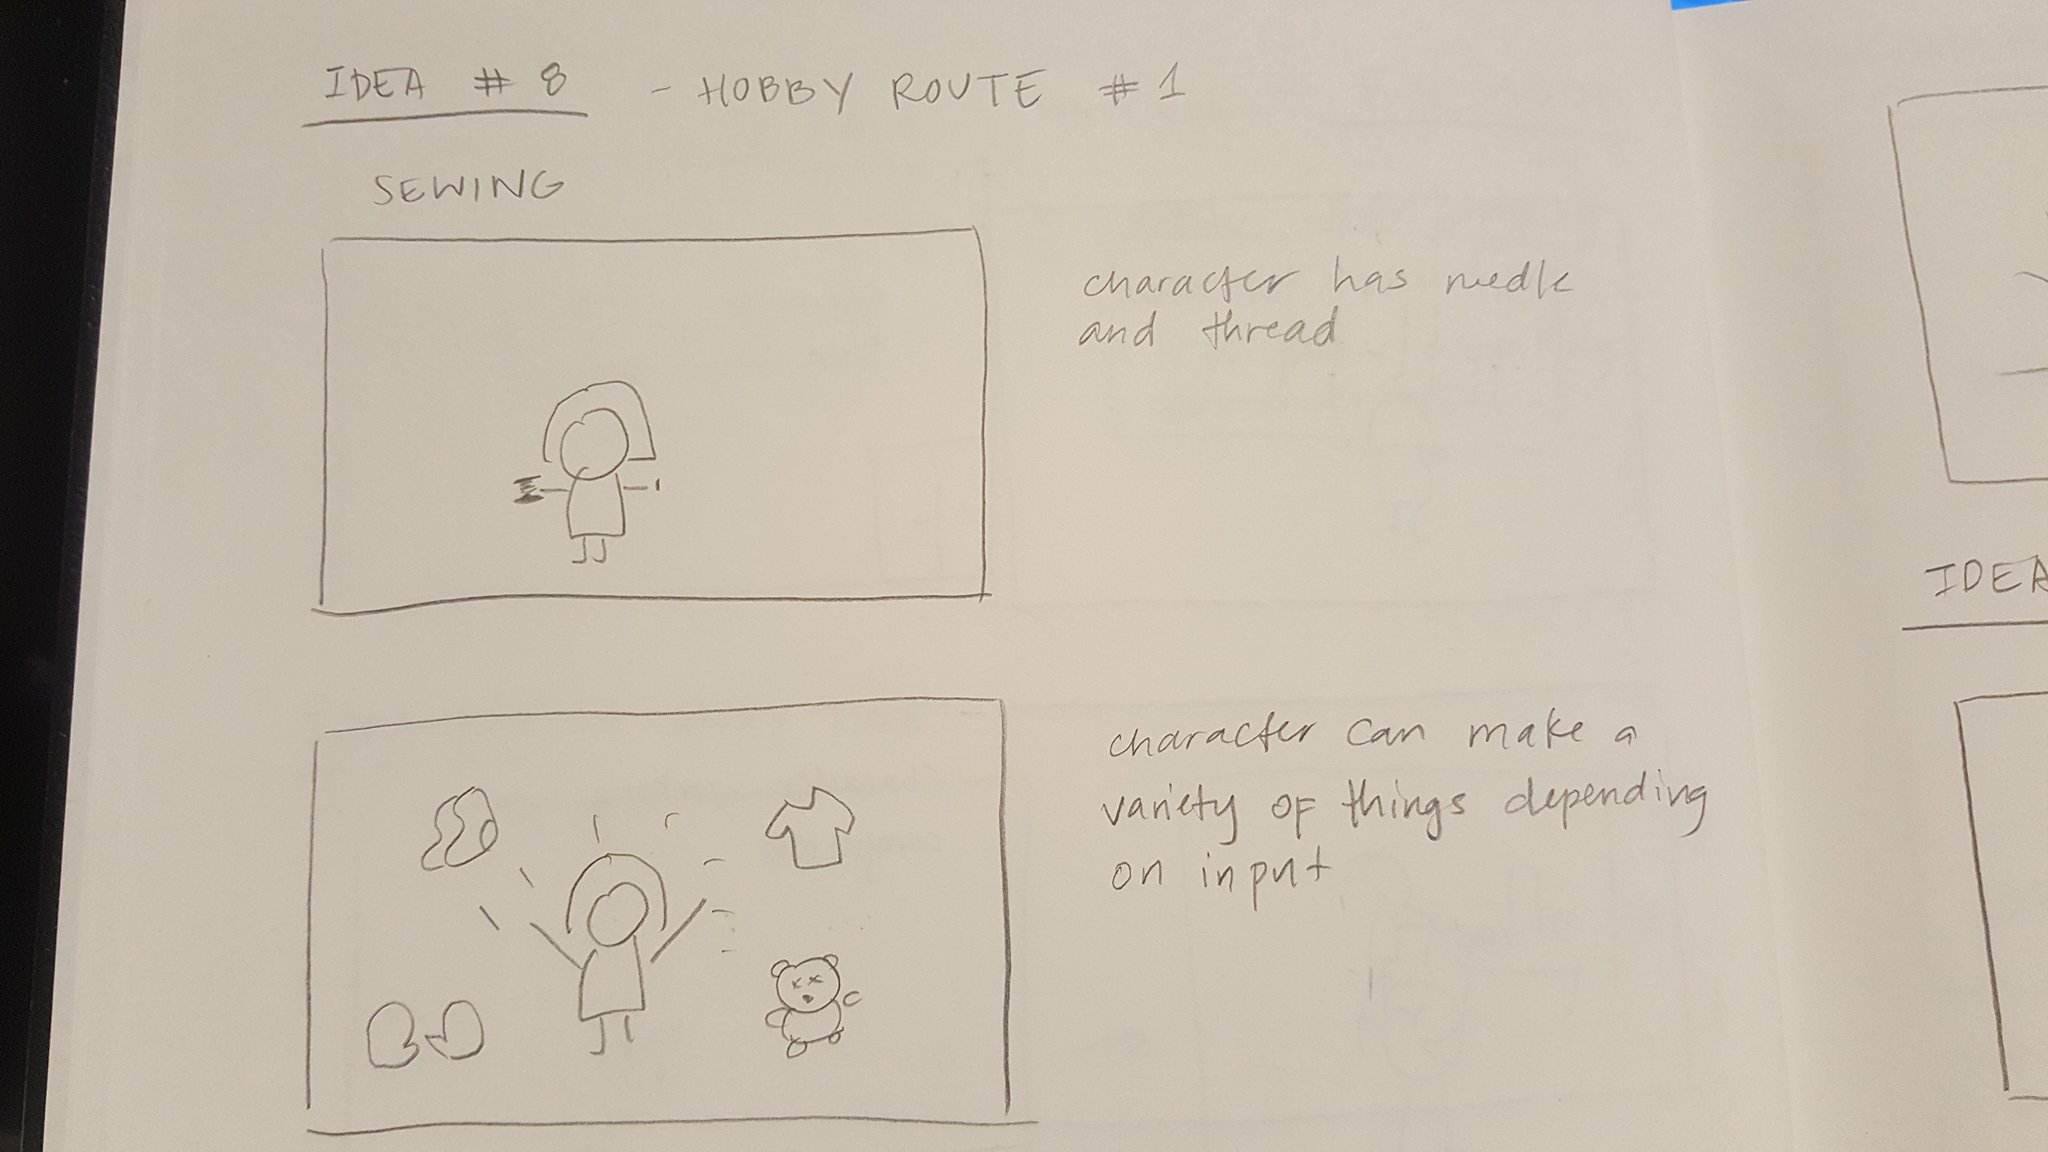 IDEA # 8 - HOBBY ROUTE # 1
SEWING
character has needle
and thread
character can make a
variety of things depending
on input
IDEA